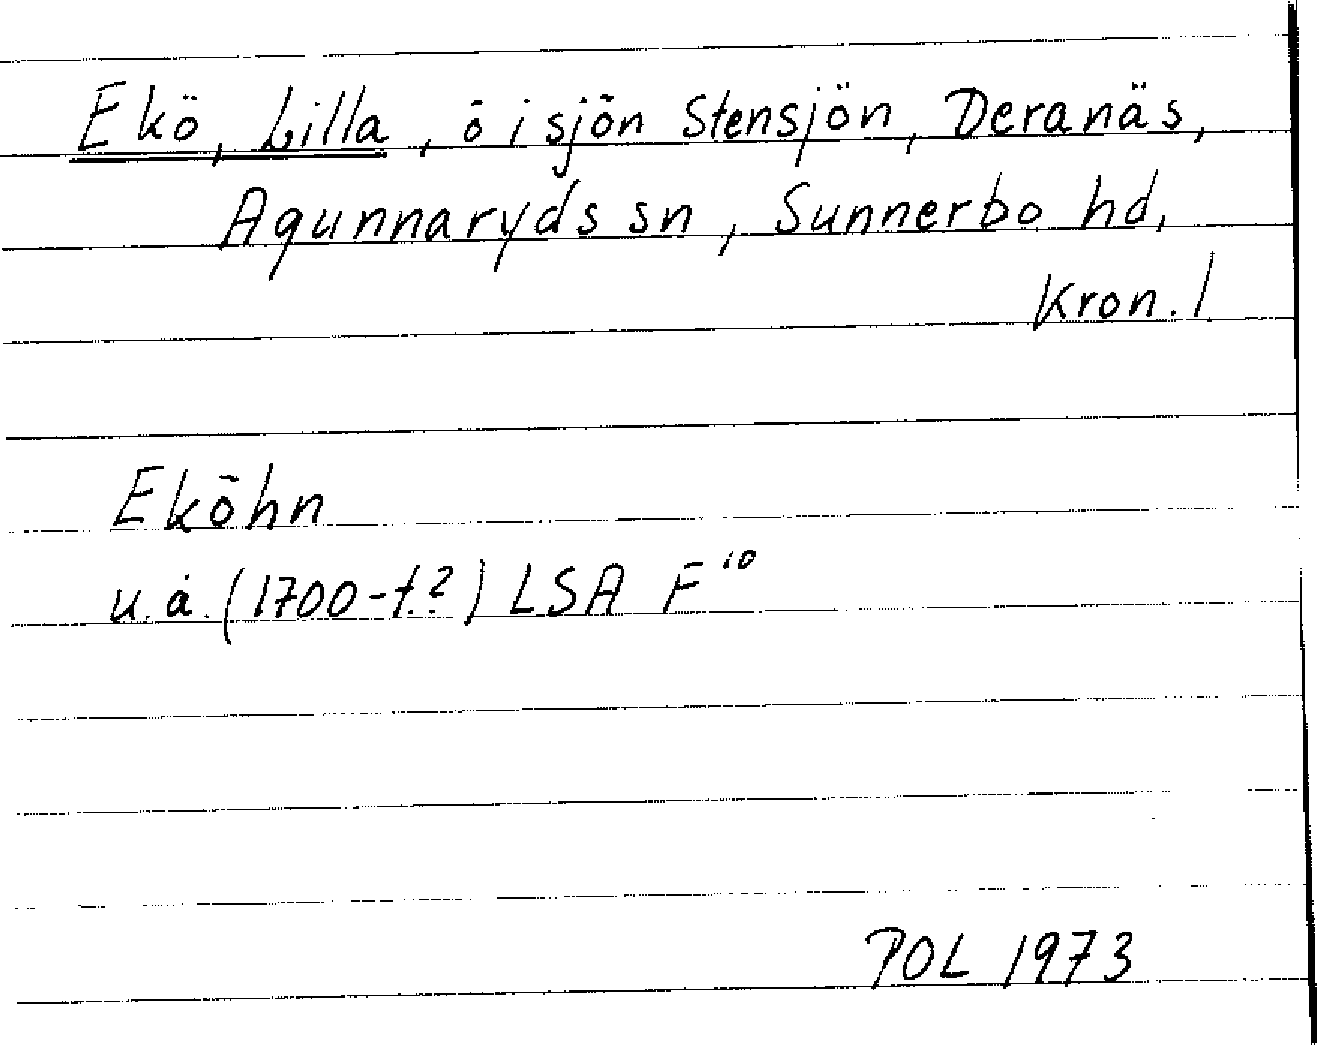 Ekö, Lilla, ö i sjön Stensjön, Deranäs,
Agunnaryds sn, Sunnerbo hd,
Kron. l.
Eköhn
u.å. (1700-t.?) LSA F¹⁰
POL 1973